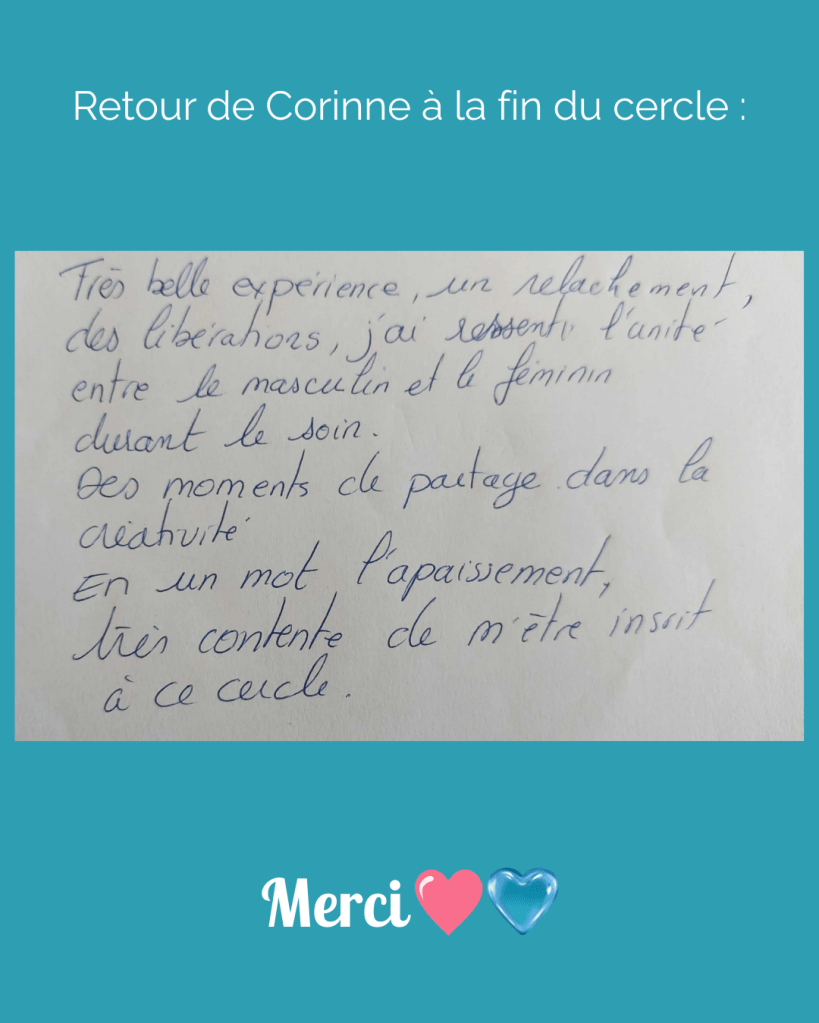 Retour de Corinne à la fin du cercle :
Très belle expérience, un relachement,
des libérations, j'ai ressenti l'unité
entre le masculin et le féminin
durant le soin.
Des moments de partage dans la
créativité
En un mot l'apaissement,
très contente de m'être inscrit
à ce cercle.
Merci